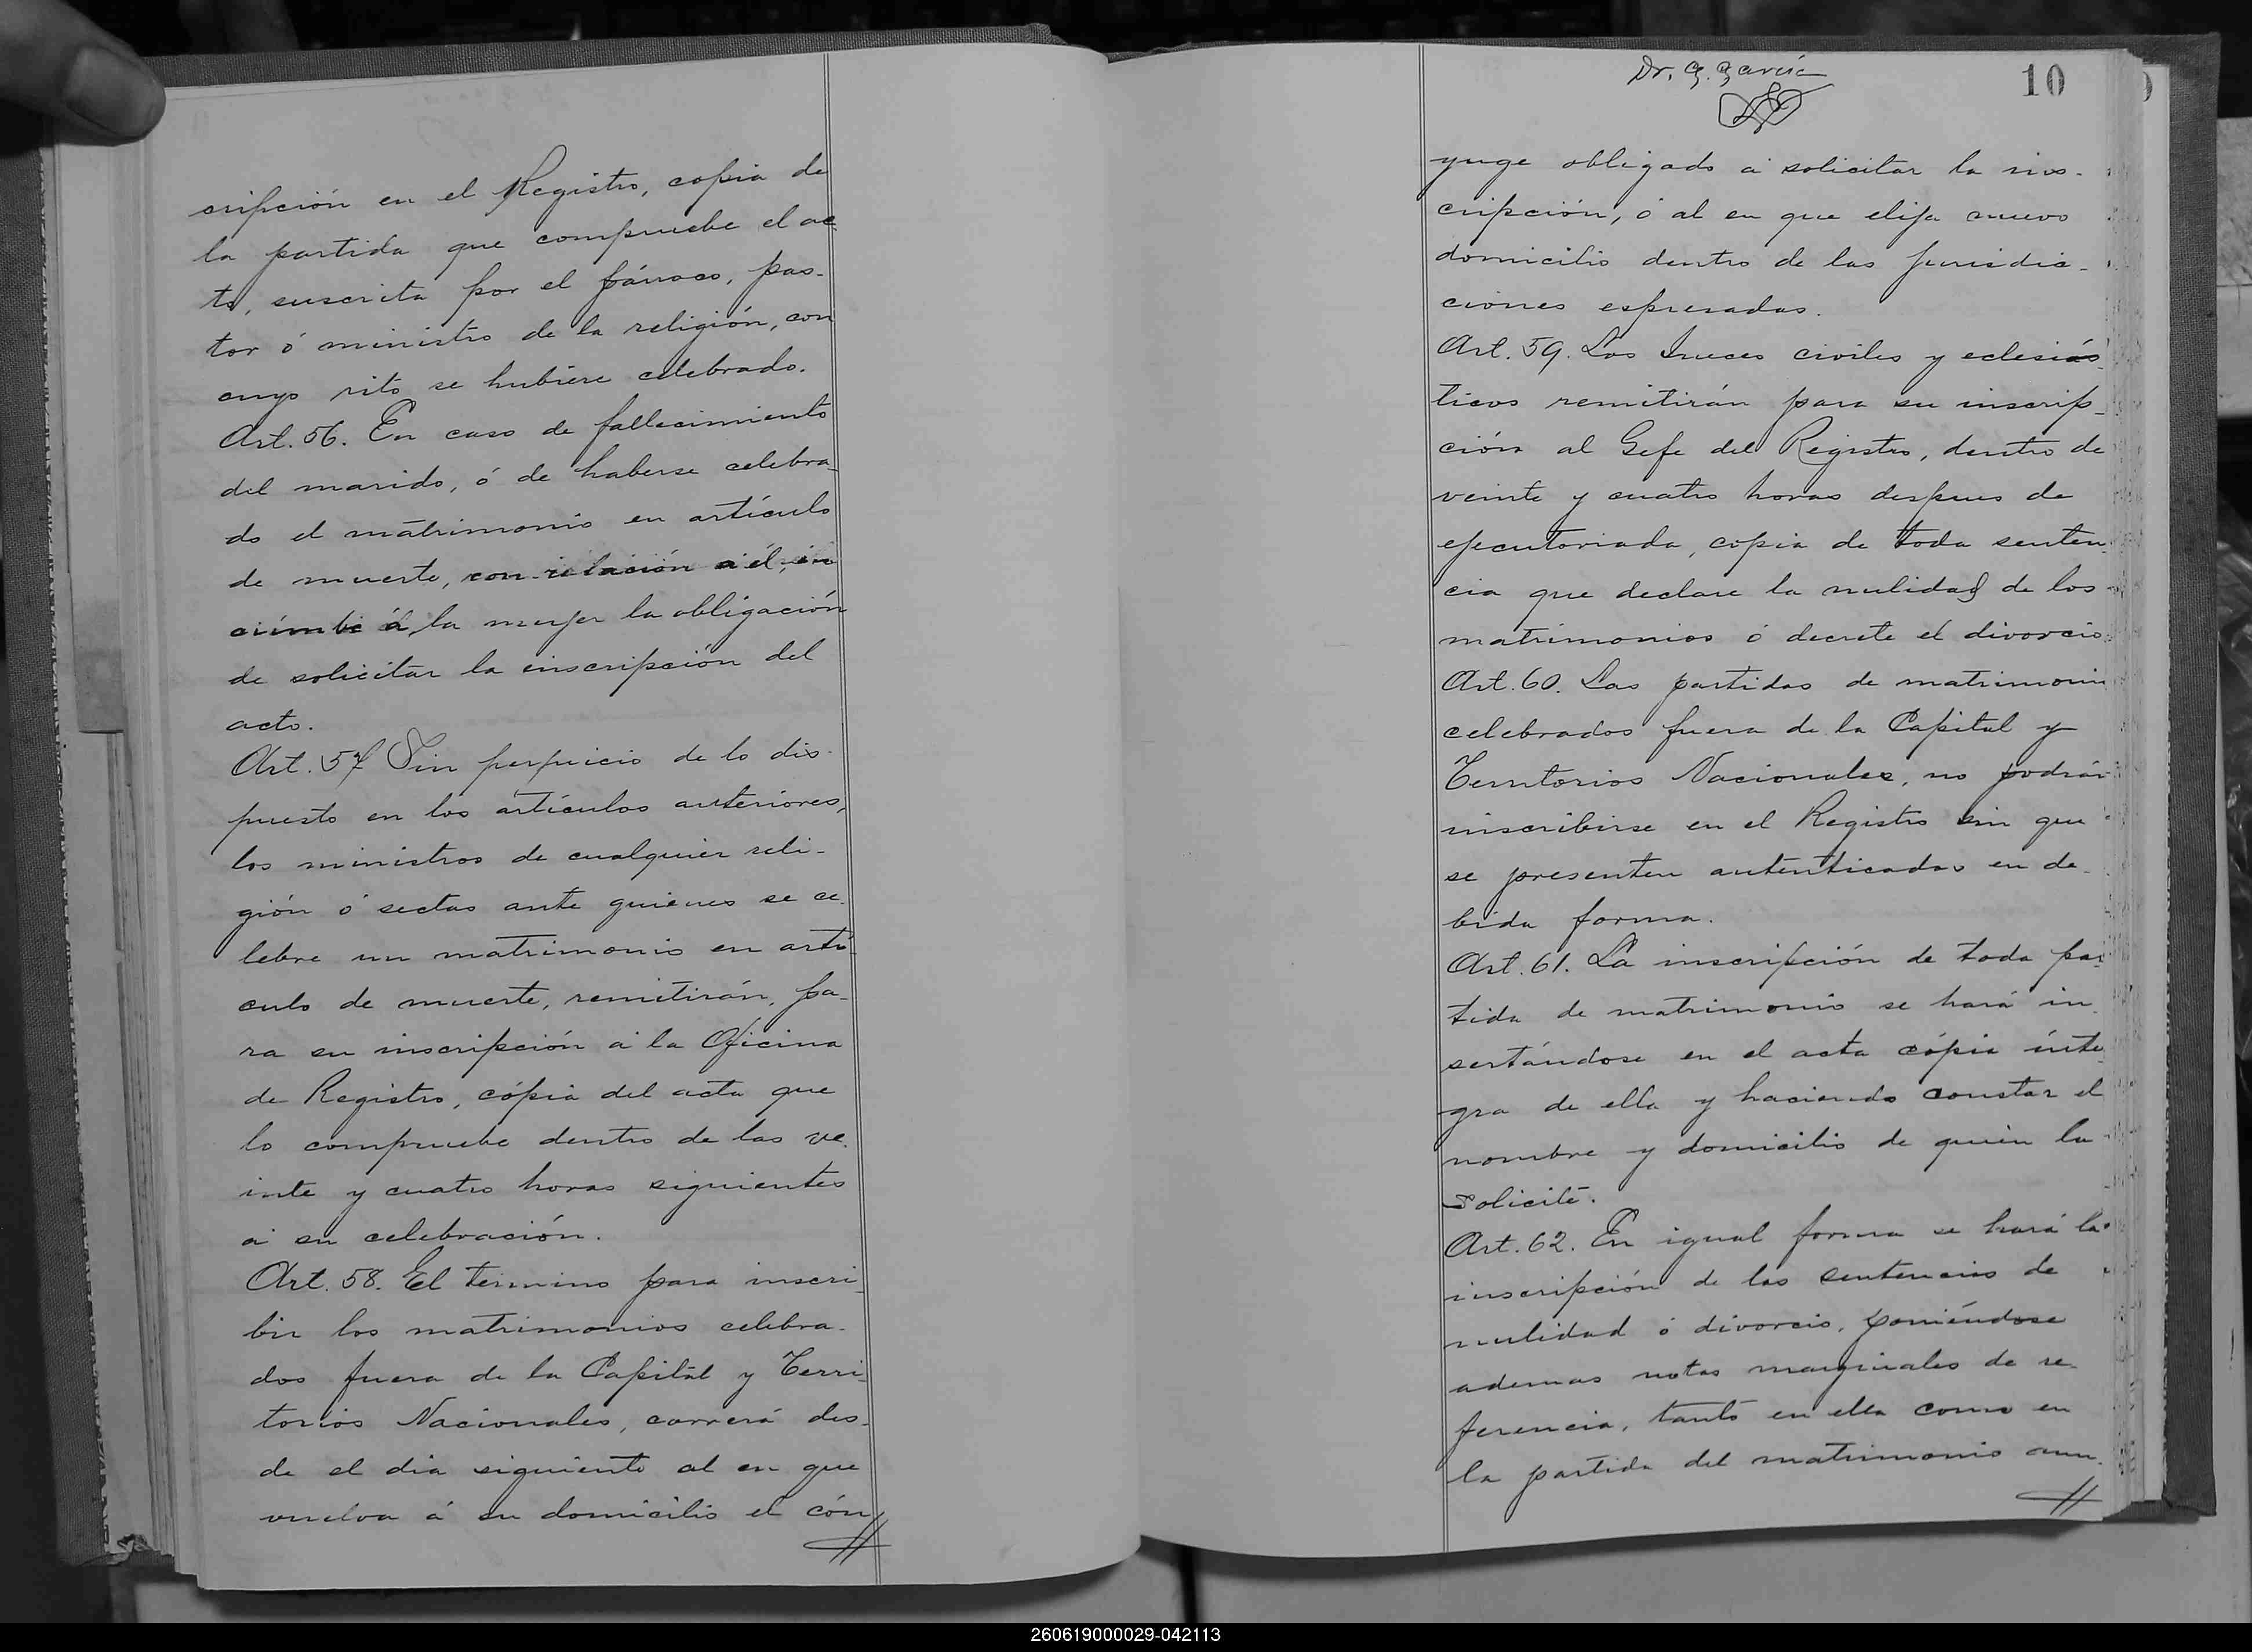 cripción en el Registro, copia de
la partida que compruebe el ac
to, suscrita por el párroco, pas-
tor ó ministro de la religión, con
cuyo rito se hubiere celebrado.
Art. 56. En caso de fallecimiento
del marido, ó de haberse celebra-
do el matrimonio en artículo
de muerte, con relación á él, in
cumbe á la mujer la obligación
de solicitar la inscripción del
acto.
Art. 57 Sin perjuicio de lo dis-
puesto en los artículos anteriores,
los ministros de cualquier reli-
gión ó sectas ante quienes se ce-
lebre un matrimonio en artí-
culo de muerte, remitirán, pa-
ra su inscripción á la Oficina
de Registro, cópia del acta que
lo compruebe dentro de las ve-
inte y cuatro horas siguientes
á su celebración.
Art. 58. El término para inscri-
bir los matrimonios celebra-
dos fuera de la Capital y Terri-
torios Nacionales, correrá des-
de el dia siguiente al en que
vuelva á su domicilio el cón
Dr. G. García
10
yuge obligado á solicitar la ins-
cripción, ó al en que elija nuevo
domicilio dentro de las jurisdic-
ciones espresadas.
Art. 59. Los Jueces civiles y eclesiás
ticos remitirán para su inscrip-
ción al Gefe del Registro, dentro de
veinte y cuatro horas despues de
ejecutoriada, copia de toda senten
cia que declare la nulidad de los
matrimonios ó decrete el divorcio.
Art. 60. Las partidas de matrimonio
celebrados fuera de la Capital y
Territorios Nacionales, no podrán
inscribirse en el Registro sin que
se presenten autenticadas en de-
bida forma.
Art. 61. La inscripción de toda par
tida de matrimonio se hará in
sertándose en el acta cópia ínte
gra de ella y haciendo constar el
nombre y domicilio de quien la
solicite.
Art. 62. En igual forma se hará la
inscripción de las sentencias de
nulidad ó divorcio, poniéndose
ademas notas marginales de re-
ferencia, tanto en ella como en
la partida del matrimonio anu-
260619000029-042113